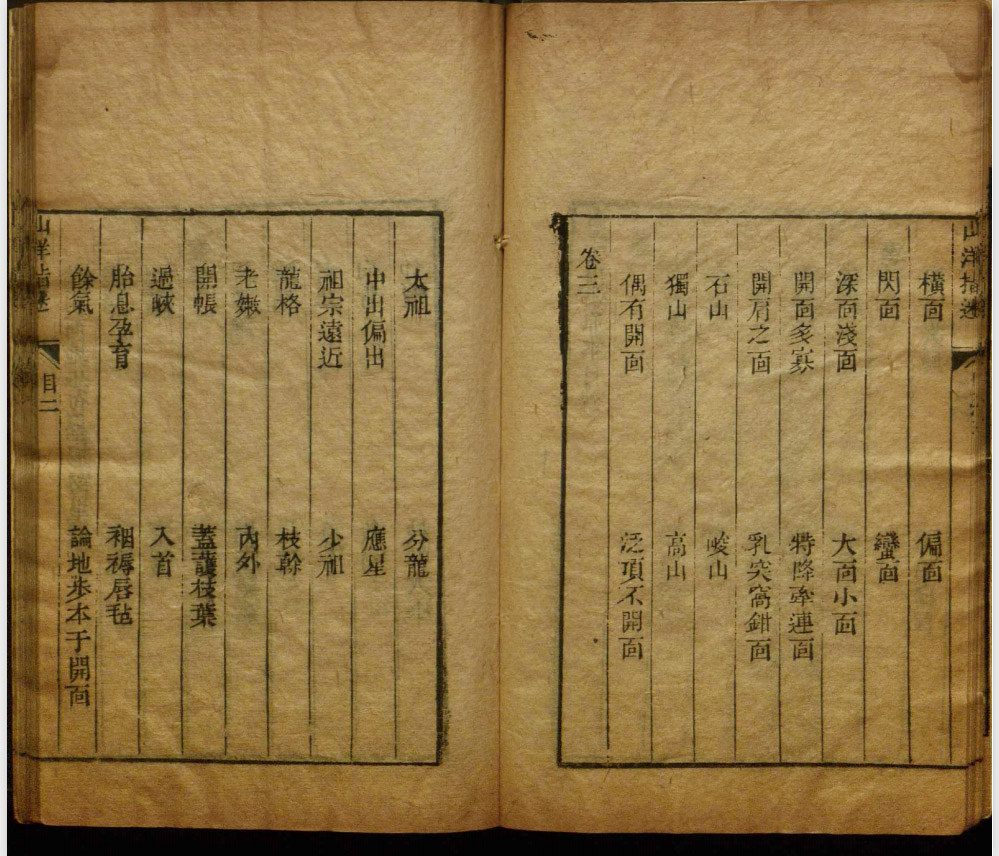 山洋指迷
橫面 偏面
閃面 蠻面
深面淺面 大面小面
開面多寡 特降牽連面
開肩之面 乳突窩鉗面
石山 峻山
獨山 高山
偶有開面 泛項不開面
卷三
太祖 分龍
中出偏出 應星
祖宗遠近 少祖
龍格 枝幹
老嫩 內外
開帳 蓋護枝葉
過峽 入首
胎息孕育 裀褥唇毡
餘氣 論地步本于開面
山洋指迷 目二